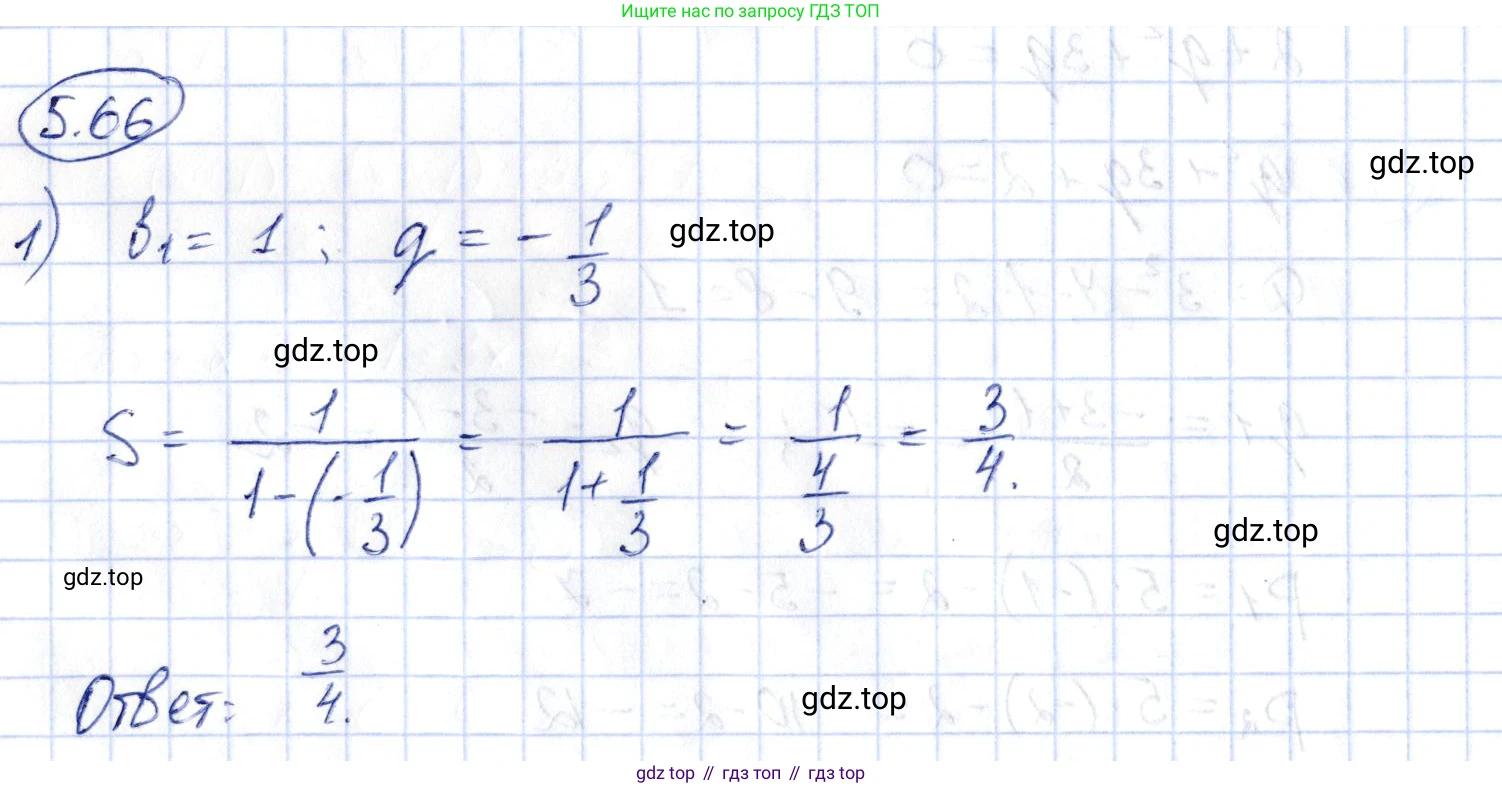 Ищите нас по запросу ГДЗ ТОП
5.66
gdz.top
1) b₁ = 1 ; q = - 1/3
gdz.top
gdz.top
S = 1/(1-(-1/3)) = 1/(1+1/3) = 1/(4/3) = 3/4.
gdz.top
gdz.top
Ответ: 3/4.
gdz.top
gdz top // гдз топ // гдз top